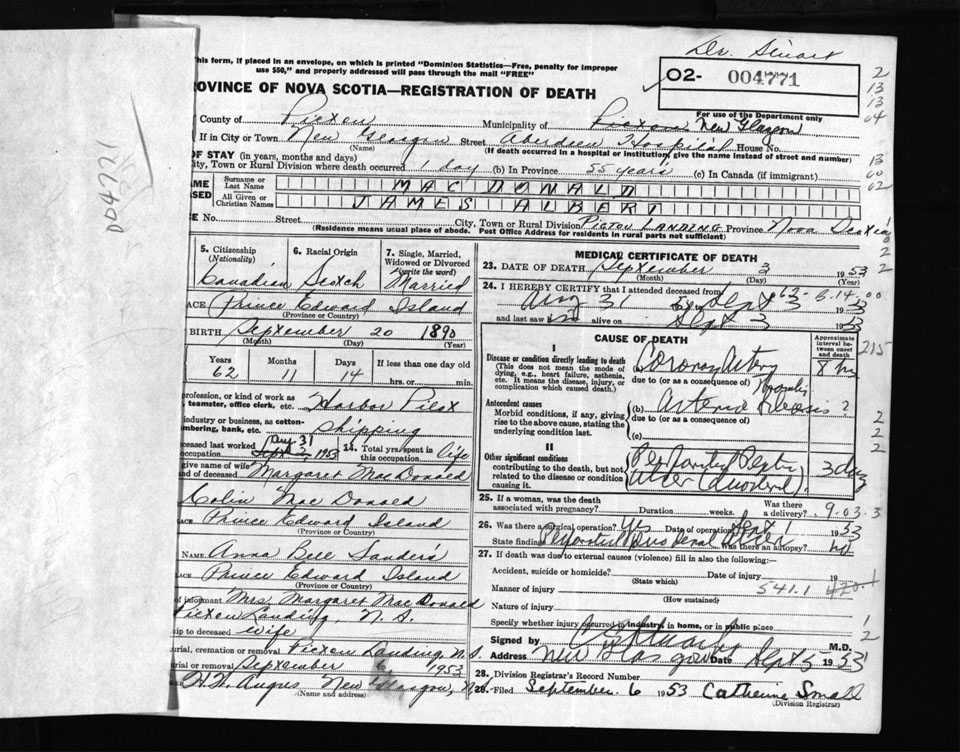 Dr. Stuart
This form, if placed in an envelope, on which is printed "Dominion Statistics—Free, penalty for improper
use $50," and properly addressed will pass through the mail "FREE"
02- 004771
OVINCE OF NOVA SCOTIA—REGISTRATION OF DEATH
For use of the Department only
2
13
13
04
County of Pictou Municipality of Pictou New Glasgow
If in City or Town New Glasgow Street Aberdeen Hospital House No.
(Name) (If death occurred in a hospital or institution, give the name instead of street and number)
OF STAY (in years, months and days)
ity, Town or Rural Division where death occurred 1 day (b) In Province 55 years (c) In Canada (if immigrant)
13
00
02
AME Surname or Last Name MAC DONALD
ASED All Given or Christian Names JAMES ALBERT
CE No. Street City, Town or Rural Division PICTOU LANDING Province Nova Scotia
(Residence means usual place of abode. Post Office Address for residents in rural parts not sufficient)
5. Citizenship (Nationality) 6. Racial Origin 7. Single, Married, Widowed or Divorced (write the word)
Canadian Scotch Married
ACE Prince Edward Island
(Province or Country)
BIRTH September 20 1890
(Month) (Day) (Year)
Years Months Days If less than one day old
62 11 14 hrs. or min.
profession, or kind of work as
teamster, office clerk, etc. Harbor Pilot
industry or business, as cotten-
mbering, bank, etc. Shipping
Aug 31
ceased last worked
occupation 1953 14. Total yrs. spent in this occupation life
give name of wife
nd of deceased Margaret MacDonald
Colin MacDonald
ACE Prince Edward Island
NAME Anna Bell Sanders
ACE Prince Edward Island
(Province or Country)
of informant Mrs. Margaret MacDonald
Pictou Landing, N.S.
hip to deceased wife
urial, cremation or removal Pictou Landing N.S.
urial or removal September 6 1953
H.W. Angus New Glasgow, N.S.
(Name and address)
MEDICAL CERTIFICATE OF DEATH
23. DATE OF DEATH September 3 1953
(Month) (Day) (Year)
24. I HEREBY CERTIFY that I attended deceased from
Aug 31 to Sept 3 1953
and last saw him alive on Sept 3 1953
CAUSE OF DEATH
Approximate interval between onset and death
I
Disease or condition directly leading to death
(This does not mean the mode of dying, e.g., heart failure, asthenia, etc. It means the disease, injury, or complication which caused death.)
Coronary Artery
due to (or as a consequence of) Thrombosis
8 hrs
Antecedent causes
Morbid conditions, if any, giving rise to the above cause, stating the underlying condition last.
(b) Arteriosclerosis ?
due to (or as a consequence of)
(c)
II
Other significant conditions
contributing to the death, but not related to the disease or condition causing it.
Perforated Peptic
Ulcer (duodenal) 3 days
215
25. If a woman, was the death associated with pregnancy? Duration weeks. Was there a delivery?
9.03.3
26. Was there a surgical operation? Yes Date of operation Sept 1 1953
State finding Perforated Duodenal Ulcer Was there an autopsy? no
27. If death was due to external causes (violence) fill in also the following:—
Accident, suicide or homicide? Date of injury 19
(State which)
Manner of injury 541.1
(How sustained)
Nature of injury
Specify whether injury occurred in industry, in home, or in public place
Signed by M.D.
Address New Glasgow Date Sept 5 1953
28. Division Registrar's Record Number
29. Filed September 6 1953 Catherine Small
(Division Registrar)